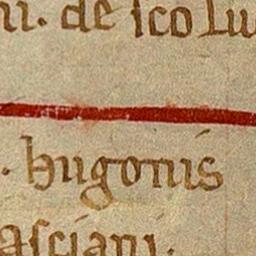 . de sco Lu
. hugonis
asciani.